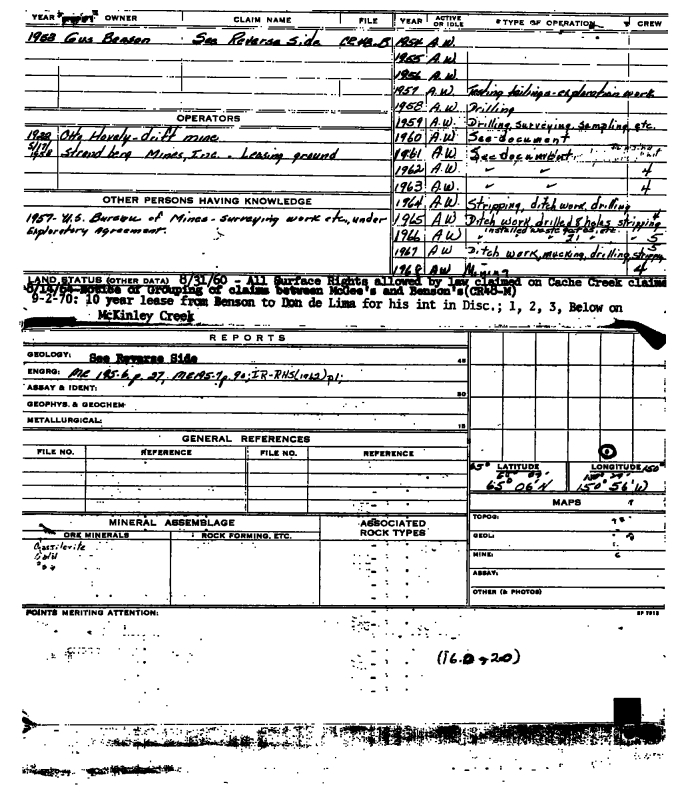 YEAR OWNER CLAIM NAME FILE
1958 Gus Benson See Reverse Side
OPERATORS
Otto Hovely - drift mine
Strandberg Mines, Inc. - Leasing ground
OTHER PERSONS HAVING KNOWLEDGE
1957 - U.S. Bureau of Mines - Surveying work etc, under
Exploratory Agreement.
YEAR ACTIVE OR IDLE TYPE OF OPERATION CREW
1954 A.W.
1955 A.W.
1956 A.W.
1957 A.W. Testing tailings - exploration work
1958 A.W. Drilling
1959 A.W. Drilling, surveying, sampling, etc.
1960 A.W. See document
1961 A.W. See document
1962 A.W. " " 4
1963 A.W. " " 4
1964 A.W. Stripping, ditch work, drilling
1965 A.W. Ditch work, drilled 8 holes stripping
installed waste gates, etc.
1966 A.W. 5
1967 A.W. Ditch work, mucking, drilling, stripping
1968 A.W. Mining 4
LAND STATUS (OTHER DATA) 8/31/60 - All Surface Rights allowed by law claimed on Cache Creek claims
Notice of Grouping of claims between McGee's and Benson's (CR48-M)
9-2-70: 10 year lease from Benson to Don de Lima for his int in Disc.; 1, 2, 3, Below on
McKinley Creek
REPORTS
GEOLOGY: See Reverse Side 45
ENGRG: ME 195-6, p. 27, ME195-7 p. 90; IR-RHS(1962) p1;
ASSAY & IDENT: 30
GEOPHYS. & GEOCHEM:
METALLURGICAL: 15
GENERAL REFERENCES
FILE NO. REFERENCE FILE NO. REFERENCE
65° LATITUDE LONGITUDE 150°
65° 06' N 150° 56' W
MAPS
TOPOG:
GEOL:
MINE:
ASSAY:
OTHER (& PHOTOS)
MINERAL ASSEMBLAGE ASSOCIATED ROCK TYPES
ORE MINERALS ROCK FORMING, ETC.
Cassiterite
Gold
POINTS MERITING ATTENTION:
(16.0 20)